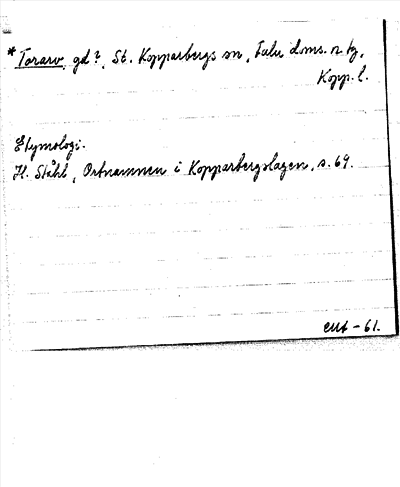 *Torarv, gd?, St. Kopparbergs sn, Falu doms. n. tg,
Kopp. l.
Etymologi.
H. Ståhl, Ortnamnen i Kopparbergslagen, s. 69.
-61.